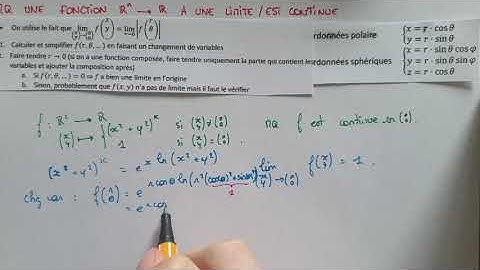 MQ UNE FONCTION ℝⁿ → ℝ A UNE LIMITE / EST CONTINUE
On utilise le fait que lim f(x y) = lim f(r θ)
1. Calculer et simplifier f(r, θ, …) en faisant un changement de variables
2. Faire tendre r → 0 (si on a une fonction composée, faire tendre uniquement la partie qui contient les variables et ajouter la composition après)
a. Si f(r, θ, …) = 0 ⇒ f a bien une limite en l'origine
b. Sinon, probablement que f(x, y) n'a pas de limite mais il faut le vérifier
ordonnées polaire {x = r · cos θ
y = r · sin θ
ordonnées sphériques {x = r · sin θ cos φ
y = r · sin θ sin φ
z = r · cos θ
f : ℝ² → ℝ
(x y) ↦ {(x² + y²)ˣ si (x y) ≠ (0 0)
1 si (x y) = (0 0)
MQ f est continue en (0 0).
lim (x y) → (0 0) f(x y) = 1.
(x² + y²)ˣ = eˣ ln(x² + y²)
Chg var : f(r θ) = e^r cosθ ln(r²(cos²θ + sin²θ))
1
= e^r cos